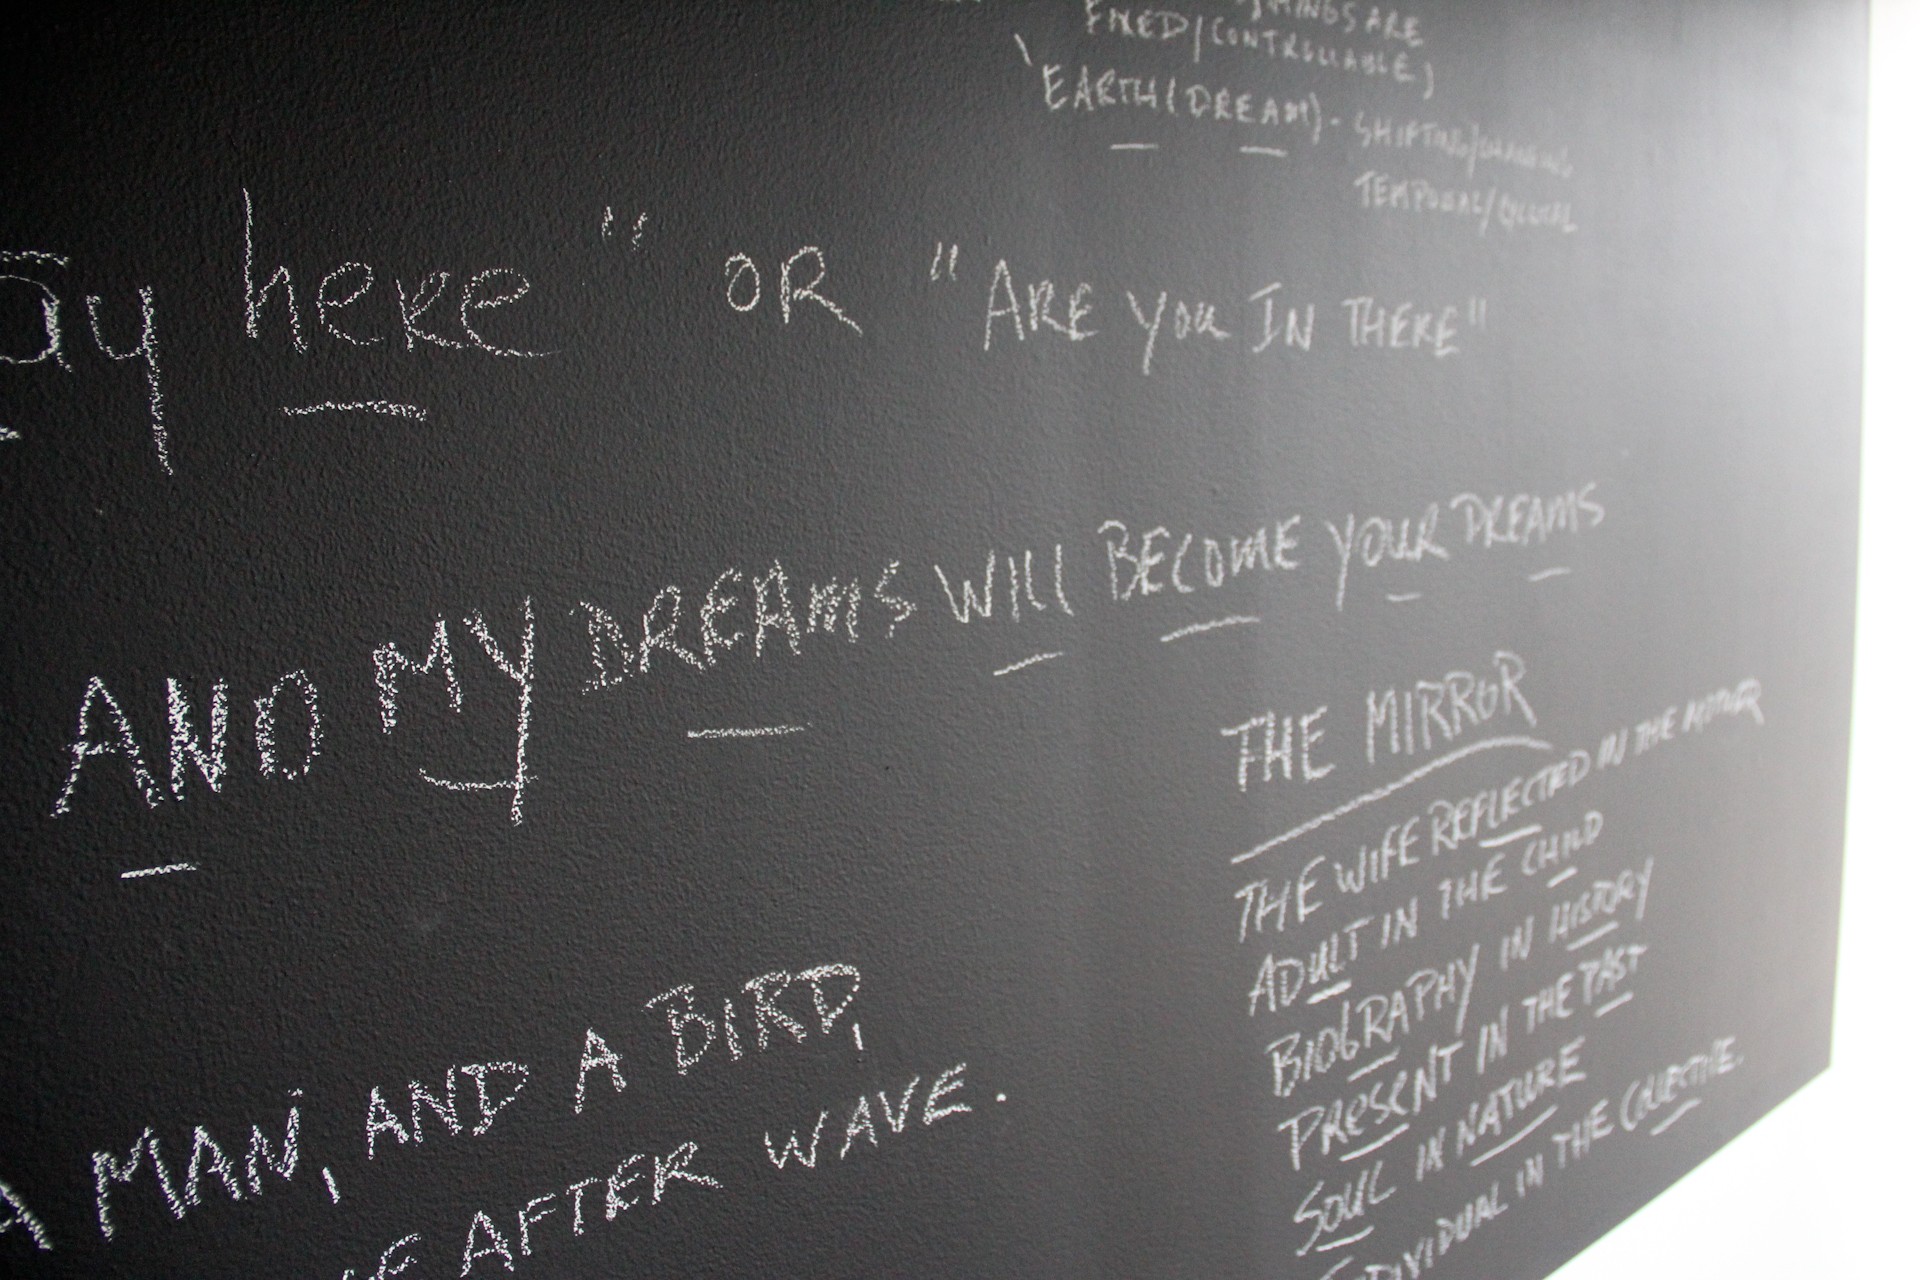 THINGS ARE
FIXED/CONTROLLABLE)
EARTH (DREAM) - SHIFTING/CHANGING
TEMPORAL/
ay here" OR "ARE YOU IN THERE"
AND MY DREAMS WILL BECOME YOUR DREAMS
THE MIRROR
THE WIFE REFLECTED IN THE MOTHER
ADULT IN THE CHILD
BIOGRAPHY IN HISTORY
PRESENT IN THE PAST
SOUL IN NATURE
INDIVIDUAL IN THE COLLECTIVE.
A MAN, AND A BIRD,
AFTER WAVE.